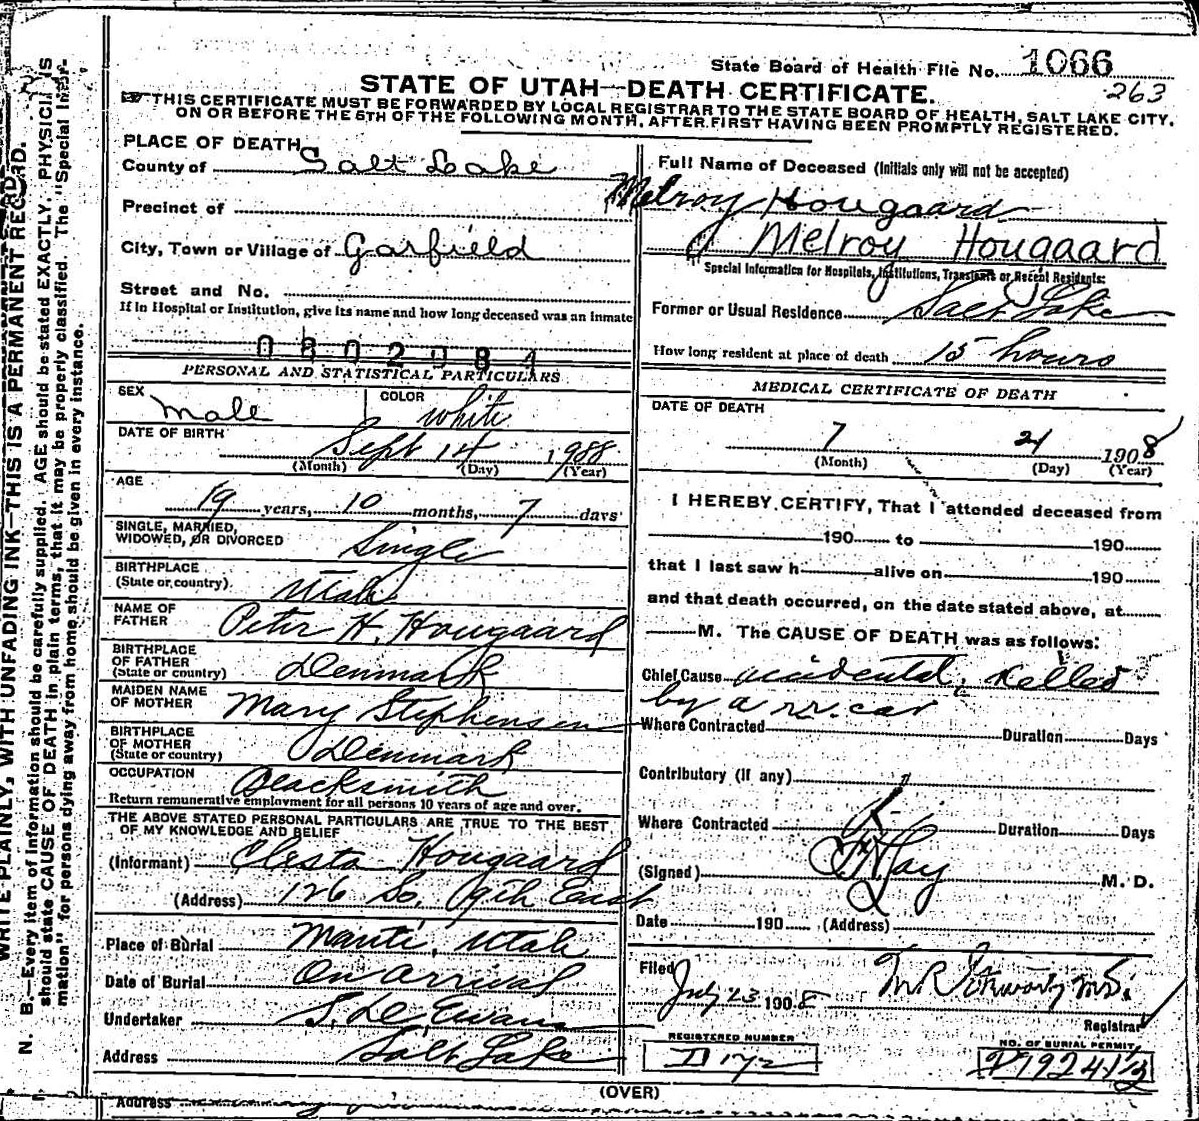 State Board of Health File No. 1066
263
STATE OF UTAH—DEATH CERTIFICATE.
THIS CERTIFICATE MUST BE FORWARDED BY LOCAL REGISTRAR TO THE STATE BOARD OF HEALTH, SALT LAKE CITY,
ON OR BEFORE THE 5TH OF THE FOLLOWING MONTH, AFTER FIRST HAVING BEEN PROMPTLY REGISTERED.
PLACE OF DEATH
County of Salt Lake
Precinct of
City, Town or Village of Garfield
Street and No.
If in Hospital or Institution, give its name and how long deceased was an inmate
0802084
PERSONAL AND STATISTICAL PARTICULARS
SEX male COLOR white
DATE OF BIRTH
Sept 14 1988
(Month) (Day) (Year)
AGE
19 years, 10 months, 7 days
SINGLE, MARRIED,
WIDOWED, OR DIVORCED Single
BIRTHPLACE
(State or country) Utah
NAME OF
FATHER Peter H. Hougaard
BIRTHPLACE
OF FATHER
(State or country) Denmark
MAIDEN NAME
OF MOTHER Mary Stephensen
BIRTHPLACE
OF MOTHER
(State or country) Denmark
OCCUPATION Blacksmith
Return remunerative employment for all persons 10 years of age and over.
THE ABOVE STATED PERSONAL PARTICULARS ARE TRUE TO THE BEST
OF MY KNOWLEDGE AND BELIEF
(Informant) Clesta Hougaard
(Address) 126 So. 9th East
Place of Burial Manti, Utah
Date of Burial On arrival
Undertaker S. D. Evans
Address Salt Lake
Full Name of Deceased (Initials only will not be accepted)
Melroy Hougaard
Melroy Hougaard
Special Information for Hospitals, Institutions, Transients or Recent Residents:
Former or Usual Residence Salt Lake
How long resident at place of death 15 hours
MEDICAL CERTIFICATE OF DEATH
DATE OF DEATH
7 21 1908
(Month) (Day) (Year)
I HEREBY CERTIFY, That I attended deceased from
190 to 190
that I last saw h alive on 190
and that death occurred, on the date stated above, at
M. The CAUSE OF DEATH was as follows:
Chief Cause accidental, killed
by a rr. car
Where Contracted Duration Days
Contributory (if any)
Where Contracted Duration Days
(Signed) M. D.
Date 190 (Address)
Filed July 23 1908
Registrar
REGISTERED NUMBER
D 172
NO. OF BURIAL PERMIT
(OVER)
Address
N. B.—Every item of information should be carefully supplied. AGE should be stated EXACTLY. PHYSICIANS
should state CAUSE OF DEATH in plain terms, that it may be properly classified. The "Special Infor-
mation" for persons dying away from home should be given in every instance.
WRITE PLAINLY, WITH UNFADING INK—THIS IS A PERMANENT RECORD.